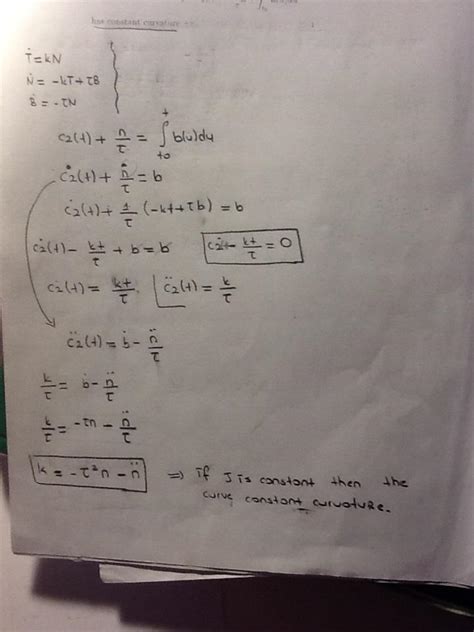 has constant curvature
Ṫ = kN
Ṅ = -kT + τB
Ḃ = -τN
c₂(t) + n/τ = ∫ₜ₀ᵗ b(u)du
ċ₂(t) + ṅ/τ = b
ċ₂(t) + 1/τ (-kt + τb) = b
ċ₂(t) - kt/τ + b = b
ċ₂ - kt/τ = 0
ċ₂(t) = kt/τ
c̈₂(t) = k/τ
c̈₂(t) = ḃ - n̈/τ
k/τ = ḃ - n̈/τ
k/τ = -τn - n̈/τ
k = -τ²n - n̈ ⇒ if J is constant then the
curve constant curvature.